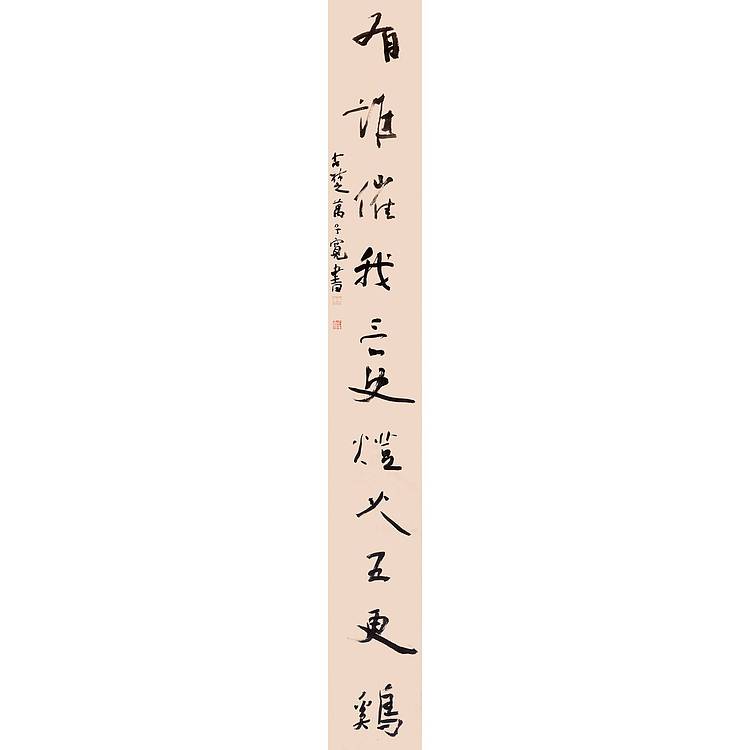 有誰催我三更燈火五更鷄
古楚萬子寬書